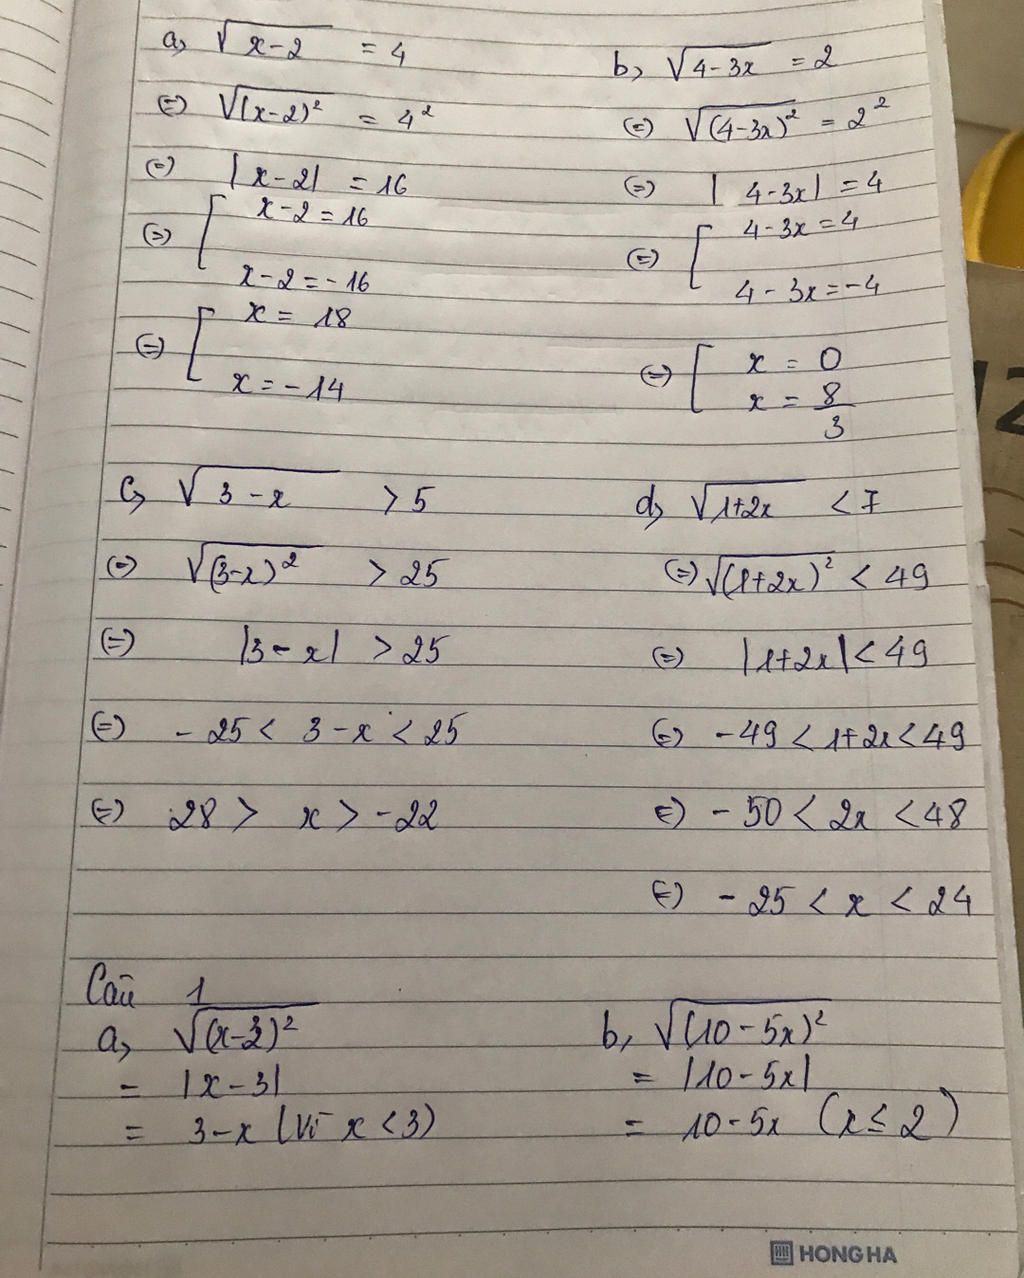 a, √(x-2) = 4
⇔ √(x-2)² = 4²
⇔ |x-2| = 16
⇔ [ x-2 = 16
x-2 = -16
⇔ [ x = 18
x = -14
b, √(4-3x) = 2
⇔ √(4-3x)² = 2²
⇔ |4-3x| = 4
⇔ [ 4-3x = 4
4-3x = -4
⇔ [ x = 0
x = 8/3
c, √(3-x) > 5
⇔ √(3-x)² > 25
⇔ |3-x| > 25
⇔ -25 < 3-x < 25
⇔ 28 > x > -22
d, √(1+2x) < 7
⇔ √(1+2x)² < 49
⇔ |1+2x| < 49
⇔ -49 < 1+2x < 49
⇔ -50 < 2x < 48
⇔ -25 < x < 24
Câu 1
a, √(x-3)²
= |x-3|
= 3-x (Vì x < 3)
b, √(10-5x)²
= |10-5x|
= 10-5x (x ≤ 2)
HONG HA
12